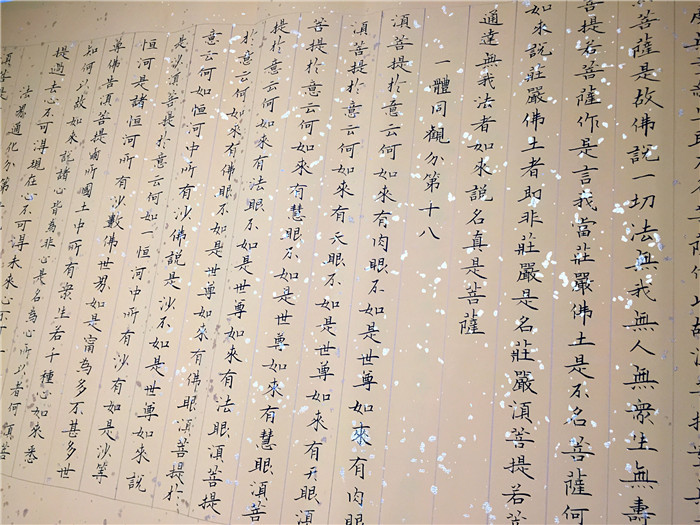 菩薩是故佛說一切法無我無人無眾生無壽
菩提若菩薩作是言我當莊嚴佛土是不名菩薩何
如來說莊嚴佛土者即非莊嚴是名莊嚴須菩提若菩
通達無我法者如來說名真是菩薩
一體同觀分第十八
須菩提於意云何如來有肉眼不如是世尊如來有肉眼
須菩提於意云何如來有天眼不如是世尊如來有天眼須
菩提於意云何如來有慧眼不如是世尊如來有慧眼須菩
提於意云何如來有法眼不如是世尊如來有法眼須菩提
於意云何如來有佛眼不如是世尊如來有佛眼須菩提於
意云何如恒河中所有沙佛說是沙不如是世尊如來說
是沙須菩提於意云何如一恒河中所有沙有如是沙等
恒河是諸恒河所有沙數佛世界如是甯為多不甚多世
尊佛告須菩提爾所國土中所有眾生若干種心如來悉
知何以故如來說諸心皆為非心是名為心所以者何須菩
提過去心不可得現在心不可得未來心不可
法界通化分第
須菩提